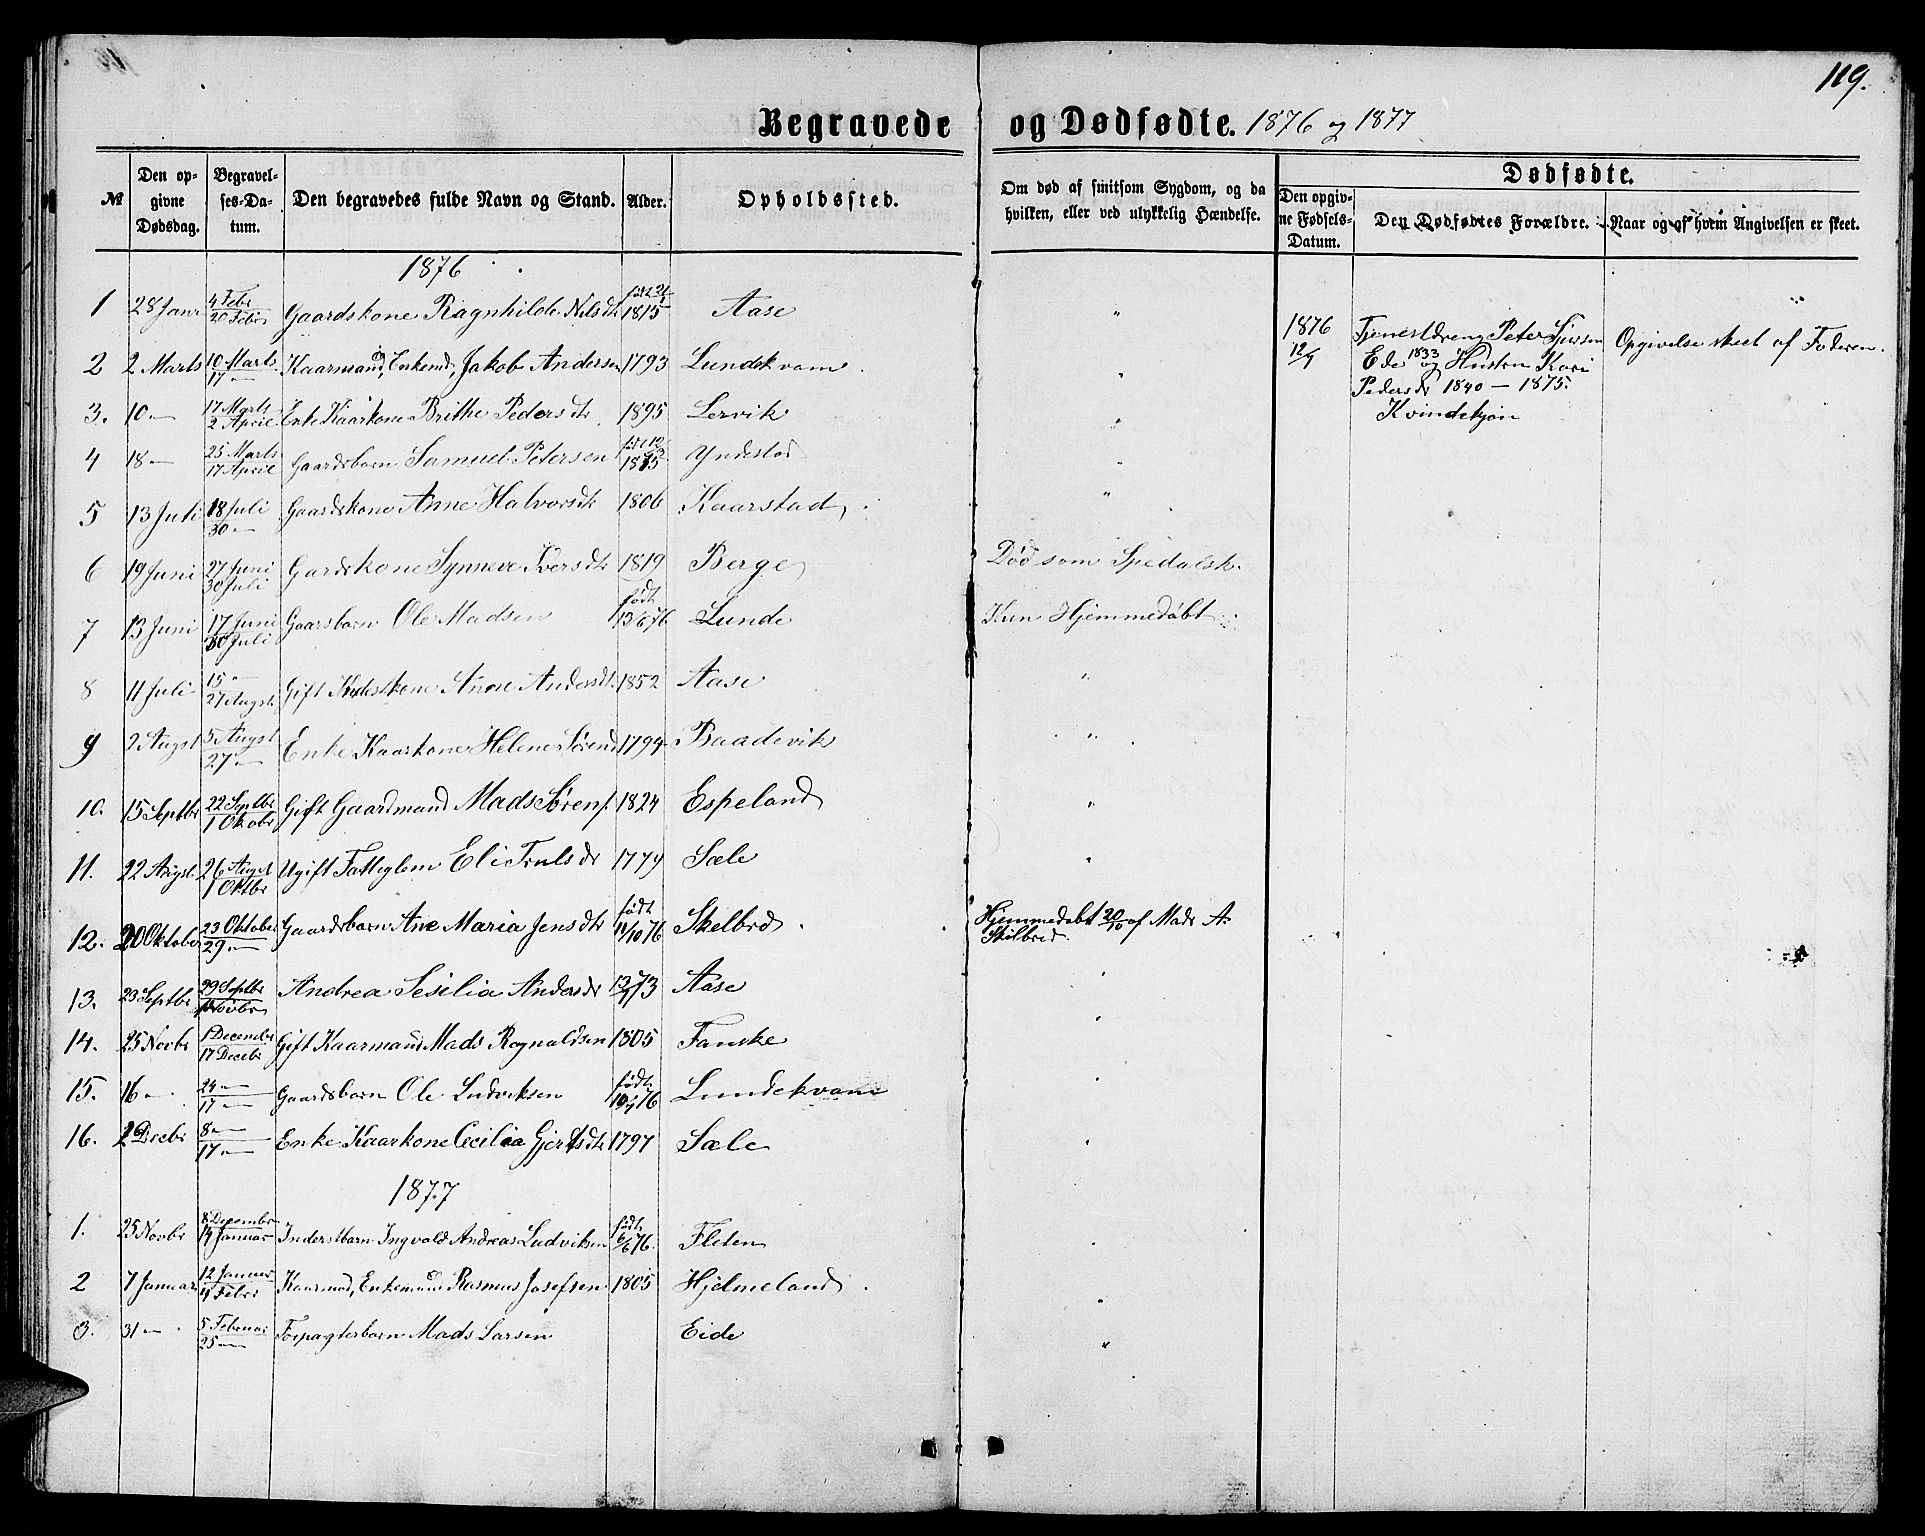 119.
Begravede og Dødfødte. 1876 og 1877
№ Den opgivne Dødsdag. Begravelses-Datum. Den begravedes fulde Navn og Stand. Alder. Opholdssted. Om død af smitsom Sygdom, og da hvilken, eller ved ulykkelig Hændelse. Dødfødte. Den opgivne Fødsels-Datum. Den Dødfødtes Forældre. Naar og af hvem Angivelsen er skeet.
1876
1 28 Janr 4 Febr 20 Febr Gaardskone Ragnhilde Nilsdtr 1815 Aase "
2 2 Marts 10 Marts 17 " Kaarmand, Enkemd, Jakob Andersen 1793 Lundekvam "
3. 10 " 17 Marts 2 April Enke Kaarkone Brithe Pedersdtr 1895 Lervik "
4 18 " 25 Marts 17 April Gaardsbarn Samuel Petersen 1875 Yndestad "
5 13 Juli 18 Juli 30 " Gaardskone Anne Halvorsdtr 1806 Kaarstad "
6 19 Juni 27 Juni 30 Juli Gardskone Synneve Iversdtr 1819 Berge Død som Spedalsk.
7 13 Juni 17 Juni 30 Juli Gaarsbarn Ole Madsen født 13/6 76 Lunde Kun Hjemmedøbt
8 11 Juli 15 " 27 Augst Gift Anne Andersdt. 1852 Aase "
9 2 Augst 5 Augst 27 " Enke Kaarkone Helene Sørend 1794 Baadevik "
10. 15 Septbr 22 Septbr 1 Oktobr Gift Gaardmand Mads Sørens. 1824 Espeland "
11. 22 Augst 26 Augst 1 Oktbr Ugift Fattiglem Eli Truls dr 1774 Sæle "
12. 20 Oktober 23 Oktober 29 " Gaardsbarn Ane Maria Jensdtr født 11/10 76 Skelbrd Hjemmedøbt 20/10 af Mads A. Skilbred.
13. 23 Septbr 29 Septbr Novbr Andrea Sesilia Andersdr 73 Aase "
14. 25 Novbr 1 December 17 Decebr Gift Kaarmand Mads Rognaldsen 1805 Fanske "
15. 16 " 24 " 17 " Gaardsbarn Ole Ludviksen født 76 Lundekvam "
16. 2 Decbr 8 " 17 " Enke Kaarkone Cecilia Gjertsdtr 1797 Sæle "
1877
1. 25 Novbr 8 December 14 Januar Inderstbarn Ingvald Andreas Ludviksen født 6/6 76. Fleten "
2 7 Januar 12 Januar 4 Febr Kaarmad, Enkemand Rasmus Josefsen 1805 Hjelmeland "
3. 31 " 5 Februar 25 " Forpagterbarn Mads Larsen Eide "
1876 12/9
Tjenestdreng Peter
Ede 1833 og Hustru Kari
Pedersdr 1840 — 1875.
Kvindekjøn
Opgivelse skeet af Faderen.